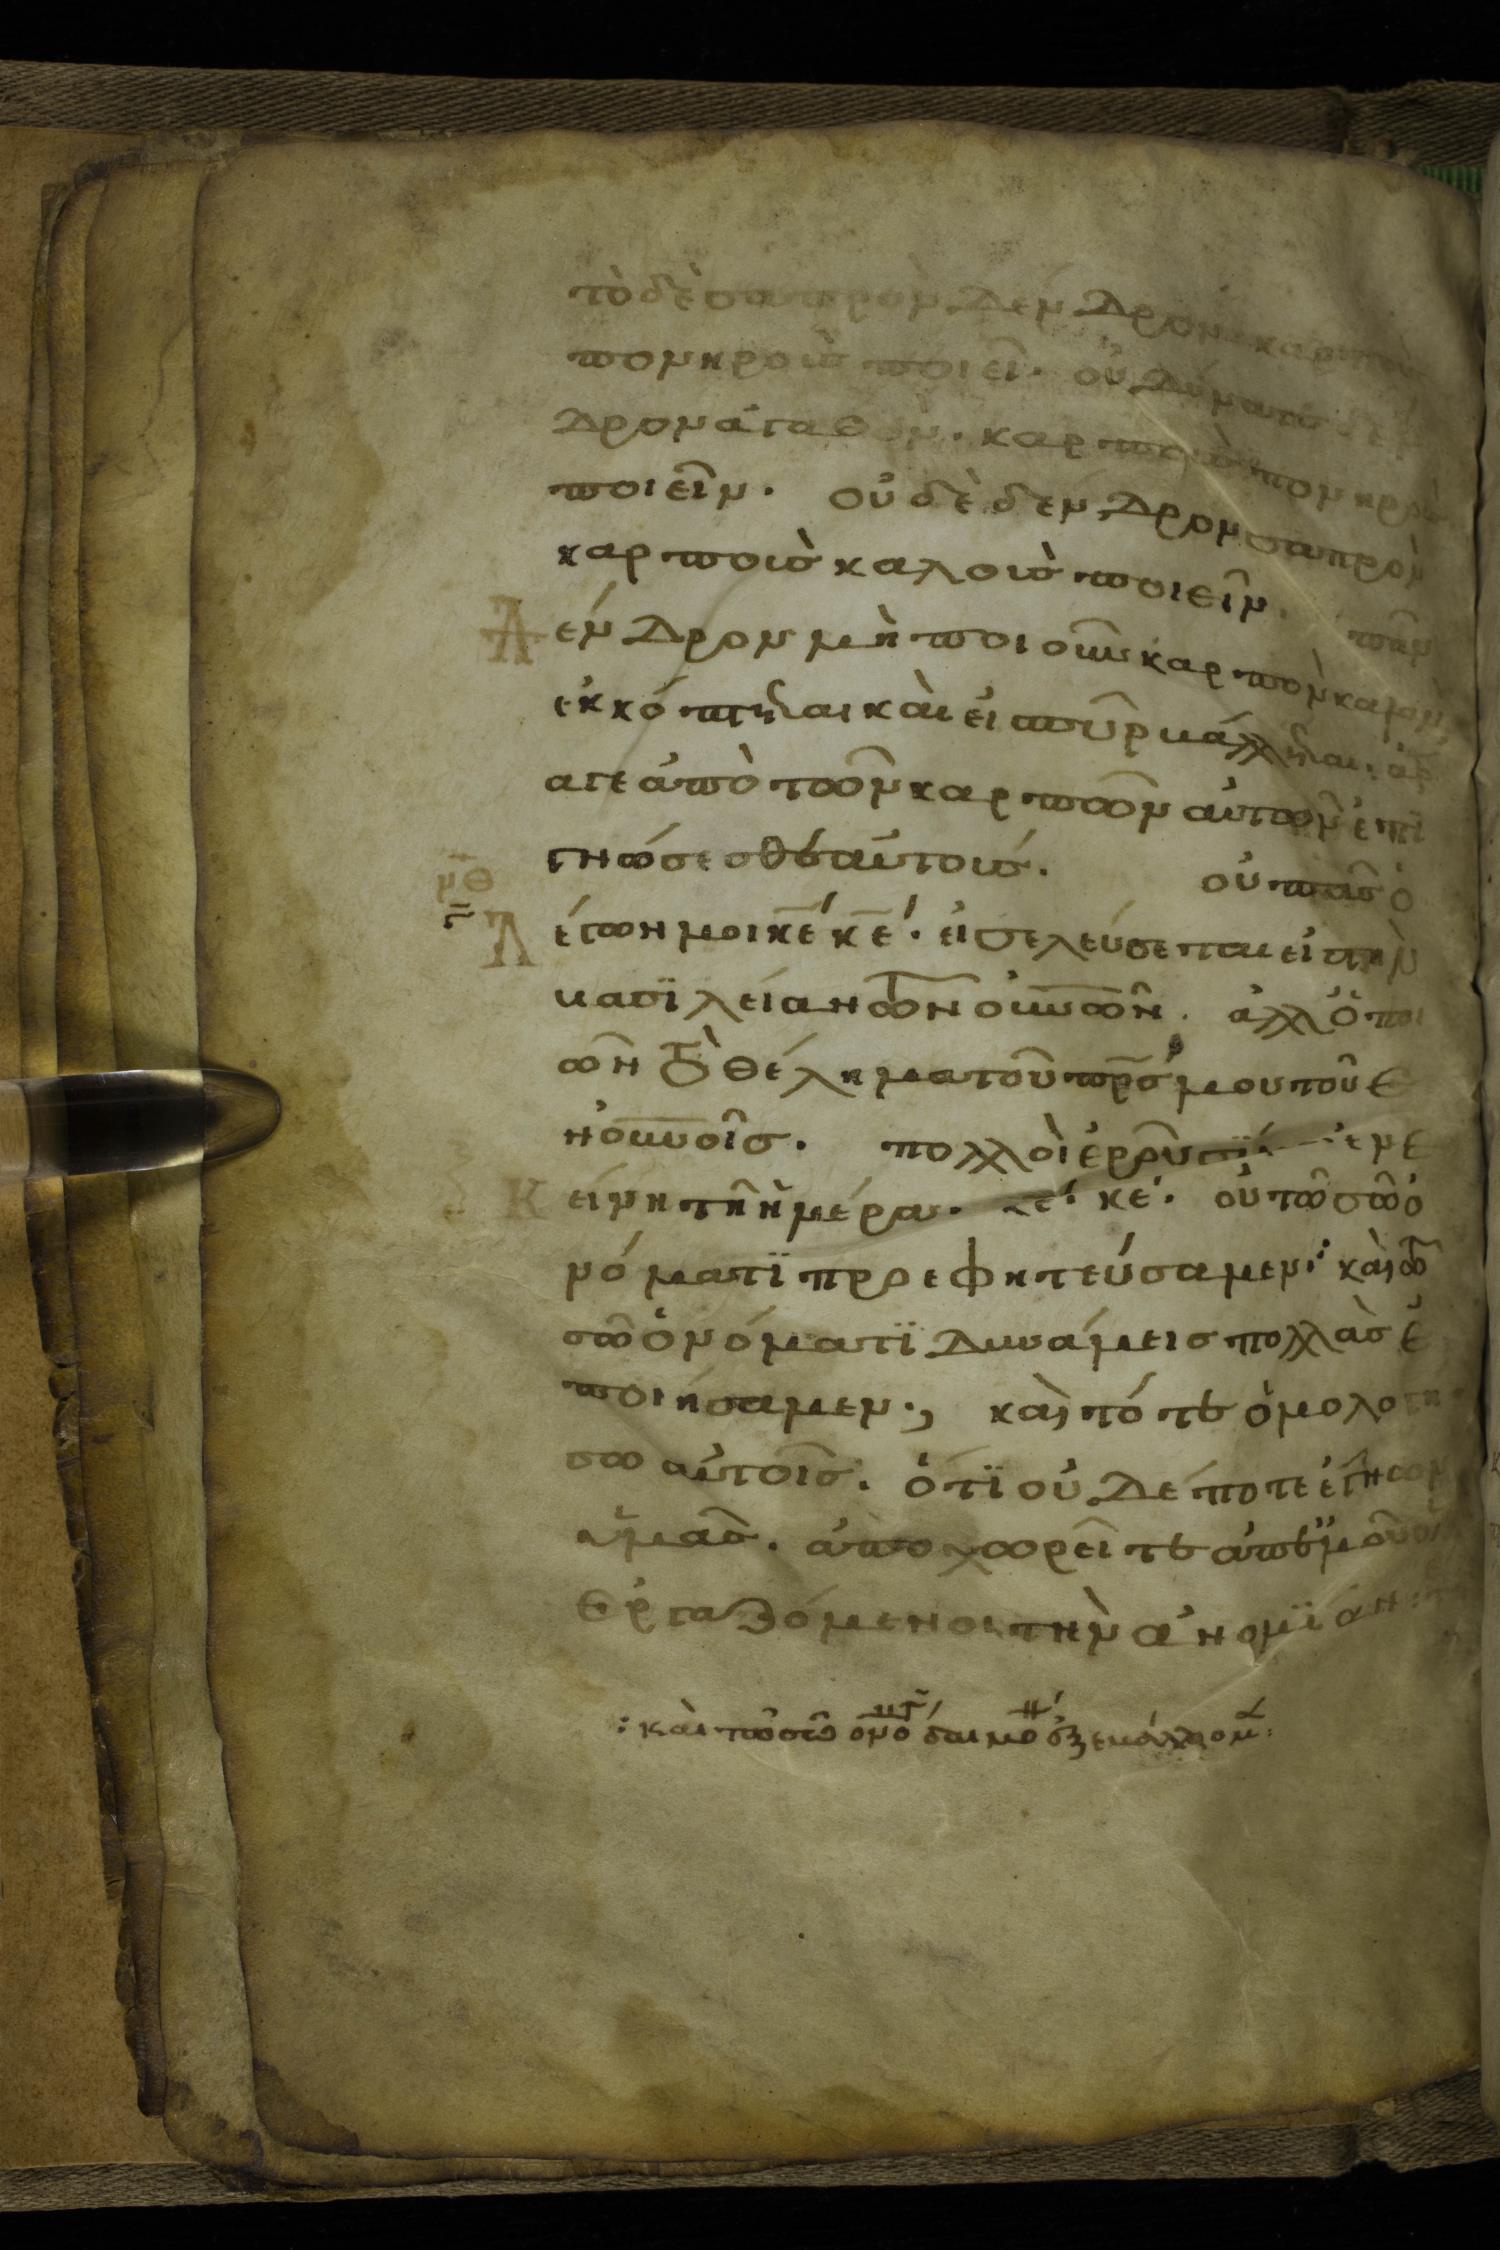 τὸ δὲ σαπρὸν δένδρον καρποὺσ
πονηροὺσ ποιεῖ. οὐ δύναται δέν
δρον ἀγαθὸν. καρποὺσ πονηροὺσ
ποιεῖν. οὐδὲ δένδρον σαπρὸν
καρποὺσ καλοὺσ ποιεῖν. πᾶν
Δένδρον μὴ ποιοῦν καρπὸν καλὸν
ἐκκόπτεται καὶ εἰσ πῦρ βάλλεται. ἄρ
αγε ἀπὸ τῶν καρπῶν αὐτῶν ἐπι
γνώσεσθε αὐτούσ. οὐ πᾶσ ὁ
ν̅θ̅
Λέγων μοι κ̅ε̅ κ̅ε̅. εἰσελεύσεται εἰσ τὴν
βασϊλείαν τῶν οὐνῶν. ἀλλ' ὁ ποι
ῶν τὸ θέλημα τοῦ π̅ρ̅σ̅ μου τοῦ ἐ
ν οὐνοῖσ. πολλοὶ ἐροῦσϊ μοι ἐν ἐ
Κείνη τῇ ἡμέρα. κ̅ε̅ κ̅ε̅. οὐ τῶ σῶ ὀ
νόματϊ προεφητεύσαμεν. καὶ τῶ
σῶ ὀνόματϊ δυνάμεισ πολλὰσ ἐ
ποιήσαμεν., καὶ τότε ὁμολογή
σω αὐτοῖσ. ὅτϊ οὐδέποτε ἔγνων
ὑμᾶσ. ἀποχωρεῖτε ἀπ' ἐμοῦ οἱ
ἐργαζόμενοι τὴν ἀνομϊαν:
: καὶ τῶ σῶ ὀνό δαιμό ἐξεβάλλομ :